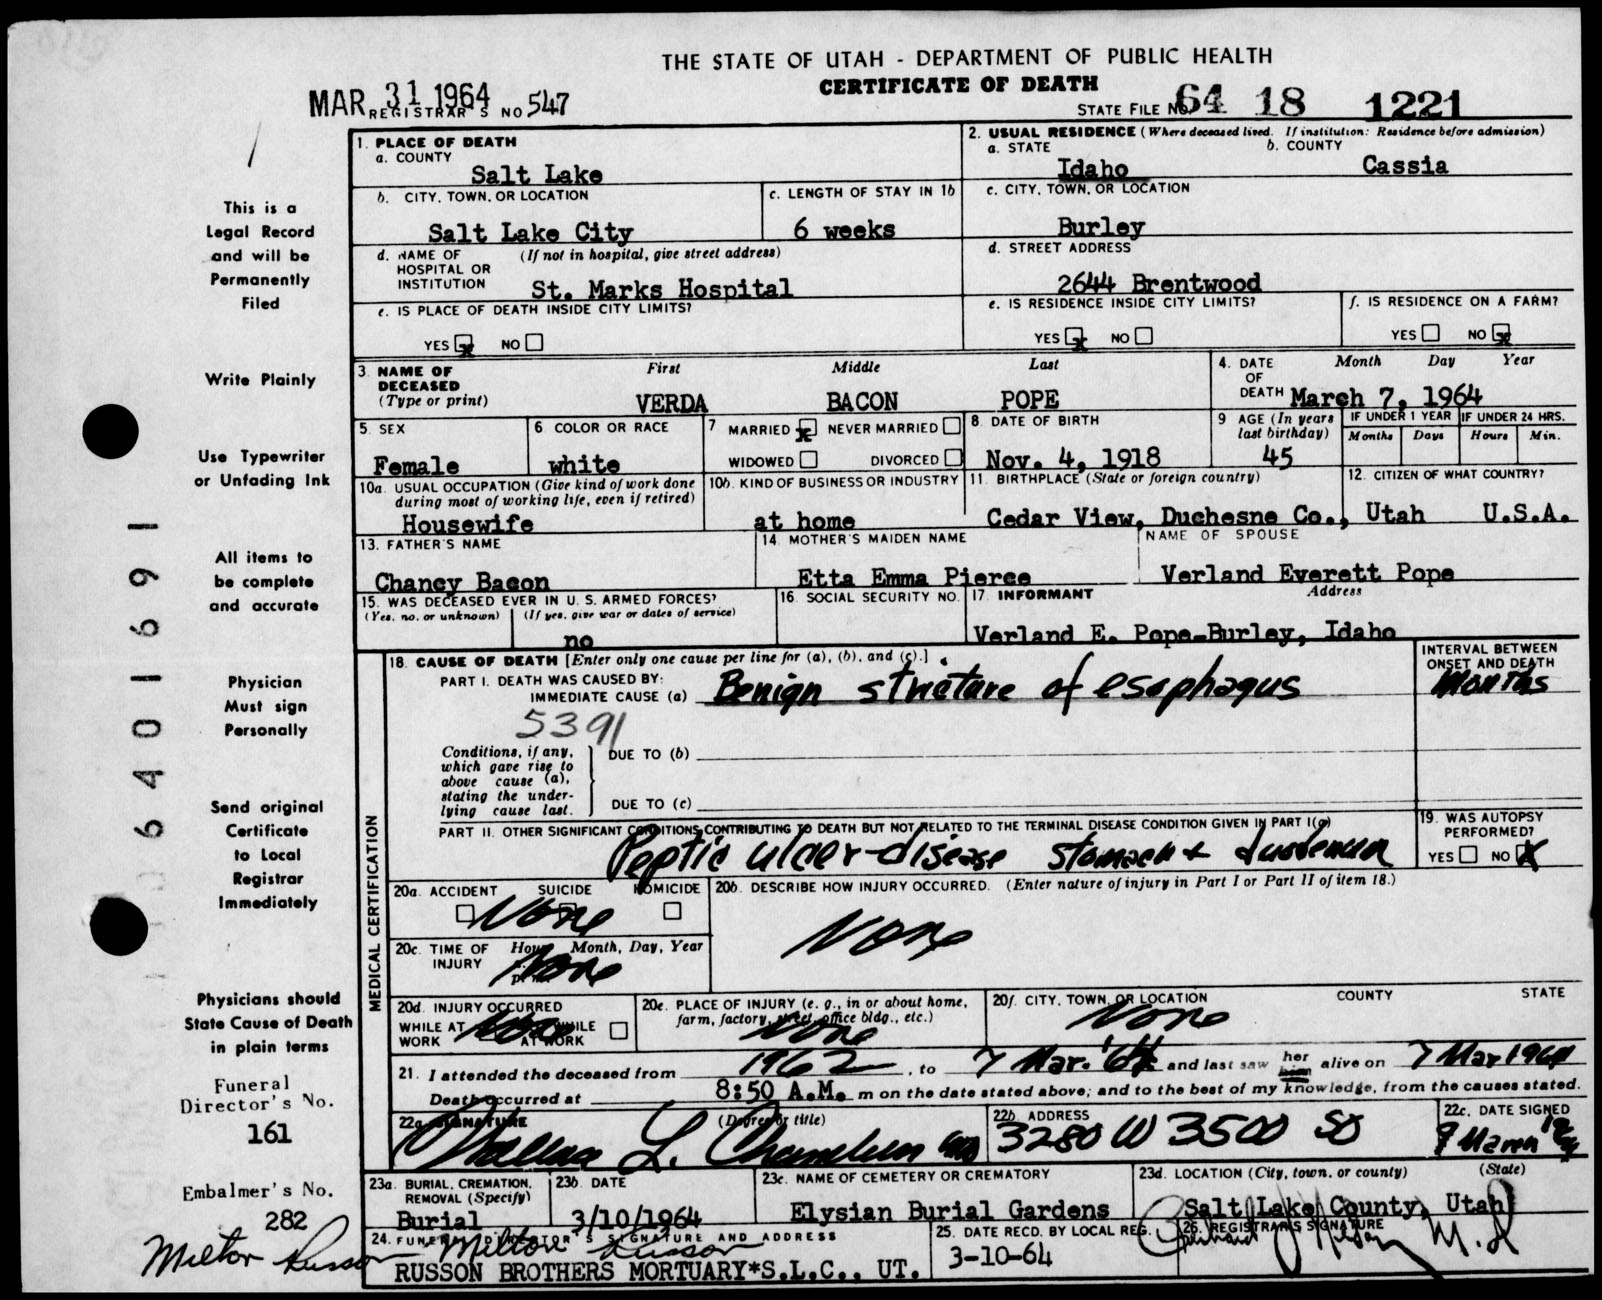 THE STATE OF UTAH - DEPARTMENT OF PUBLIC HEALTH
CERTIFICATE OF DEATH
MAR 31 1964
REGISTRAR'S NO 547
STATE FILE NO. 64 18 1221
1. PLACE OF DEATH
a. COUNTY
Salt Lake
2. USUAL RESIDENCE (Where deceased lived. If institution: Residence before admission)
a. STATE
Idaho
b. COUNTY
Cassia
b. CITY, TOWN, OR LOCATION
Salt Lake City
c. LENGTH OF STAY IN 1b
6 weeks
c. CITY, TOWN, OR LOCATION
Burley
d. NAME OF HOSPITAL OR INSTITUTION
(If not in hospital, give street address)
St. Marks Hospital
d. STREET ADDRESS
2644 Brentwood
e. IS PLACE OF DEATH INSIDE CITY LIMITS?
YES x NO
e. IS RESIDENCE INSIDE CITY LIMITS?
YES x NO
f. IS RESIDENCE ON A FARM?
YES NO x
3. NAME OF DECEASED
(Type or print)
First Middle Last
VERDA BACON POPE
4. DATE OF DEATH
Month Day Year
March 7, 1964
5. SEX
Female
6 COLOR OR RACE
white
7 MARRIED x NEVER MARRIED
WIDOWED DIVORCED
8. DATE OF BIRTH
Nov. 4, 1918
9 AGE (In years last birthday)
45
IF UNDER 1 YEAR
Months Days
IF UNDER 24 HRS.
Hours Min.
10a. USUAL OCCUPATION (Give kind of work done during most of working life, even if retired)
Housewife
10b. KIND OF BUSINESS OR INDUSTRY
at home
11. BIRTHPLACE (State or foreign country)
Cedar View, Duchesne Co., Utah
12. CITIZEN OF WHAT COUNTRY?
U.S.A.
13. FATHER'S NAME
Chancy Bacon
14. MOTHER'S MAIDEN NAME
Etta Emma Pierce
NAME OF SPOUSE
Verland Everett Pope
15. WAS DECEASED EVER IN U. S. ARMED FORCES?
(Yes, no, or unknown) (If yes, give war or dates of service)
no
16. SOCIAL SECURITY NO.
17. INFORMANT Address
Verland E. Pope-Burley, Idaho
MEDICAL CERTIFICATION
18. CAUSE OF DEATH [Enter only one cause per line for (a), (b), and (c).]
PART I. DEATH WAS CAUSED BY:
IMMEDIATE CAUSE (a) Benign stricture of esophagus
INTERVAL BETWEEN ONSET AND DEATH
Months
5391
Conditions, if any, which gave rise to above cause (a), stating the under-lying cause last.
DUE TO (b)
DUE TO (c)
PART II. OTHER SIGNIFICANT CONDITIONS CONTRIBUTING TO DEATH BUT NOT RELATED TO THE TERMINAL DISEASE CONDITION GIVEN IN PART I(a)
Peptic ulcer-disease stomach + duodenum
19. WAS AUTOPSY PERFORMED?
YES NO X
20a. ACCIDENT SUICIDE HOMICIDE
None
20b. DESCRIBE HOW INJURY OCCURRED. (Enter nature of injury in Part I or Part II of item 18.)
None
20c. TIME OF INJURY
Hour Month, Day, Year
None
20d. INJURY OCCURRED
WHILE AT WORK NOT WHILE AT WORK
None
20e. PLACE OF INJURY (e. g., in or about home, farm, factory, street, office bldg., etc.)
None
20f. CITY, TOWN, OR LOCATION COUNTY STATE
None
21. I attended the deceased from 1962, to 7 Mar. '64 and last saw her him alive on 7 Mar 1964
Death occurred at 8:50 A.M. m on the date stated above; and to the best of my knowledge, from the causes stated.
22a. SIGNATURE (Degree or title)
Wallace L. Chambers MD
22b. ADDRESS
3280 W 3500 SO
22c. DATE SIGNED
9 March 1964
23a. BURIAL, CREMATION, REMOVAL (Specify)
Burial
23b. DATE
3/10/1964
23c. NAME OF CEMETERY OR CREMATORY
Elysian Burial Gardens
23d. LOCATION (City, town, or county) (State)
Salt Lake County, Utah
24. FUNERAL DIRECTOR'S SIGNATURE AND ADDRESS
Milton Russon
RUSSON BROTHERS MORTUARY*S.L.C., UT.
25. DATE RECD. BY LOCAL REG.
3-10-64
26. REGISTRAR'S SIGNATURE
M.D
This is a
Legal Record
and will be
Permanently
Filed
Write Plainly
Use Typewriter
or Unfading Ink
All items to
be complete
and accurate
Physician
Must sign
Personally
Send original
Certificate
to Local
Registrar
Immediately
Physicians should
State Cause of Death
in plain terms
Funeral
Director's No.
161
Embalmer's No.
282
Milton Russon